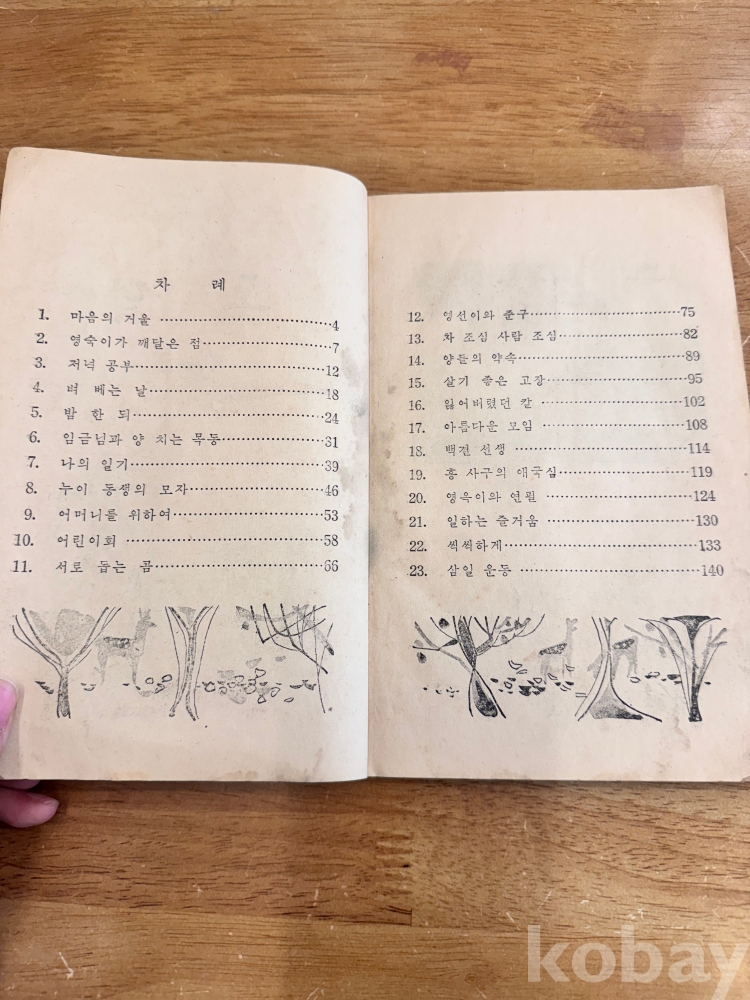 차 례
1. 마음의 거울 4
2. 영숙이가 깨달은 점 7
3. 저녁 공부 12
4. 벼 베는 날 18
5. 밤 한 되 24
6. 임금님과 양 치는 목동 31
7. 나의 일기 39
8. 누이 동생의 모자 46
9. 어머니를 위하여 53
10. 어린이회 58
11. 서로 돕는 곰 66
12. 영선이와 춘구 75
13. 차 조심 사람 조심 82
14. 양들의 약속 89
15. 살기 좋은 고장 95
16. 잃어버렸던 칼 102
17. 아름다운 모임 108
18. 백결 선생 114
19. 홍 사구의 애국심 119
20. 영옥이와 연필 124
21. 일하는 즐거움 130
22. 씩씩하게 133
23. 삼일 운동 140
kobay